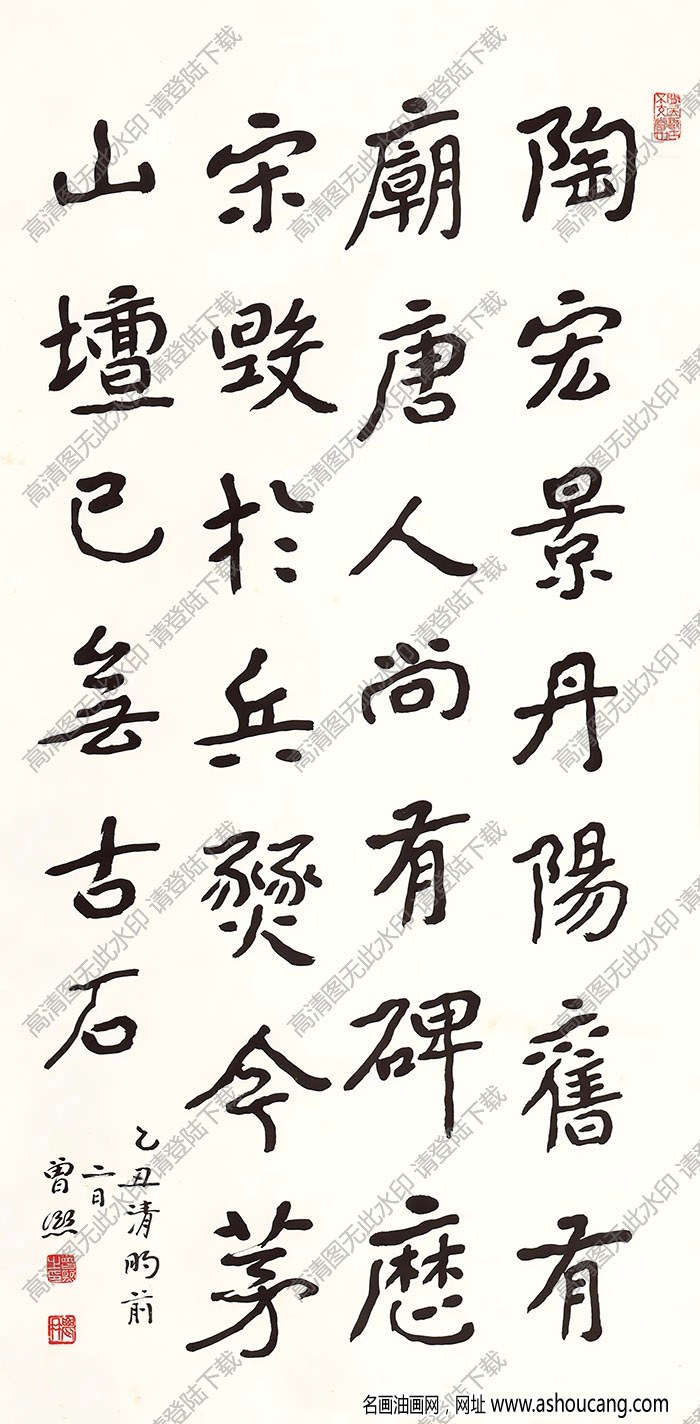 陶宏景丹陽舊有
廟唐人尚有碑歷
宋毀於兵燹今茅
山壇已無古石
乙丑清明前
二日
曾熙
高清图无此水印 请登陆下载
名画油画网，网址 www.ashoucang.com